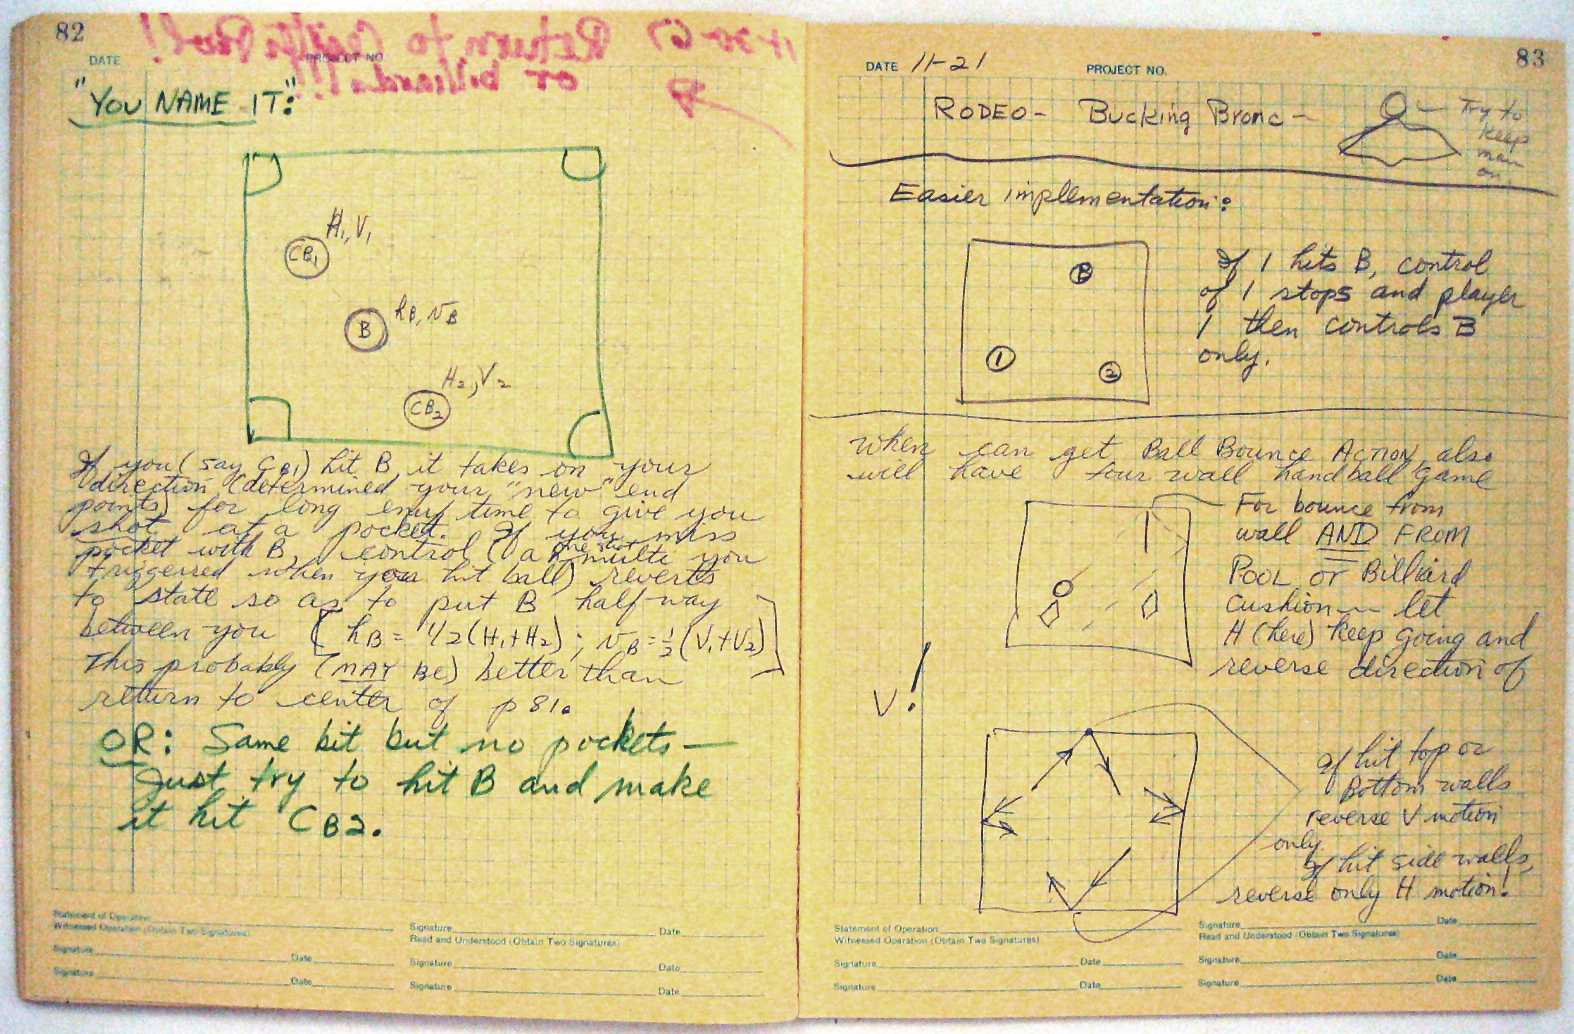 82
11-30-67 Return to Griffin Pool!
or billiards!!!
DATE
PROJECT NO.
"YOU NAME IT:"
H₁, V₁
CB₁
hB, vB
B
H₂, V₂
CB₂
If you (say CB1) hit B, it takes on your
direction (determined your "new" end
points) for long enuf time to give you
shot at a pocket. If you miss
pocket with B, control (a one shot multi you
triggerred when you hit ball) reverts
to state so as to put B half way
between you [ hB = 1/2 (H₁+H₂) ; vB = 1/2 (V₁+V₂)
This probably (MAY BE) better than ]
return to center of p 81.
OR: Same bit but no pockets —
Just try to hit B and make
it hit CB2.
Statement of Operation
Witnessed Operation (Obtain Two Signatures)
Signature Date
Signature Date
Signature Date
Read and Understood (Obtain Two Signatures)
Signature Date
Signature Date
83
DATE 11-21
PROJECT NO.
RODEO - Bucking Bronc —
Try to
keep
man
on.
Easier implementation:
B
1
2
If 1 hits B, control
of 1 stops and player
1 then controls B
only.
When can get Ball Bounce ACTION, also
will have four wall handball game
For bounce from
wall AND FROM
POOL or Billiard
cushion — let
H (here) keep going and
reverse direction of
V!
If hit top or
Bottom walls
reverse V motion
only.
If hit side walls,
reverse only H motion.
Statement of Operation Date
Witnessed Operation (Obtain Two Signatures)
Signature Date
Signature Date
Signature Date
Read and Understood (Obtain Two Signatures)
Signature Date
Signature Date